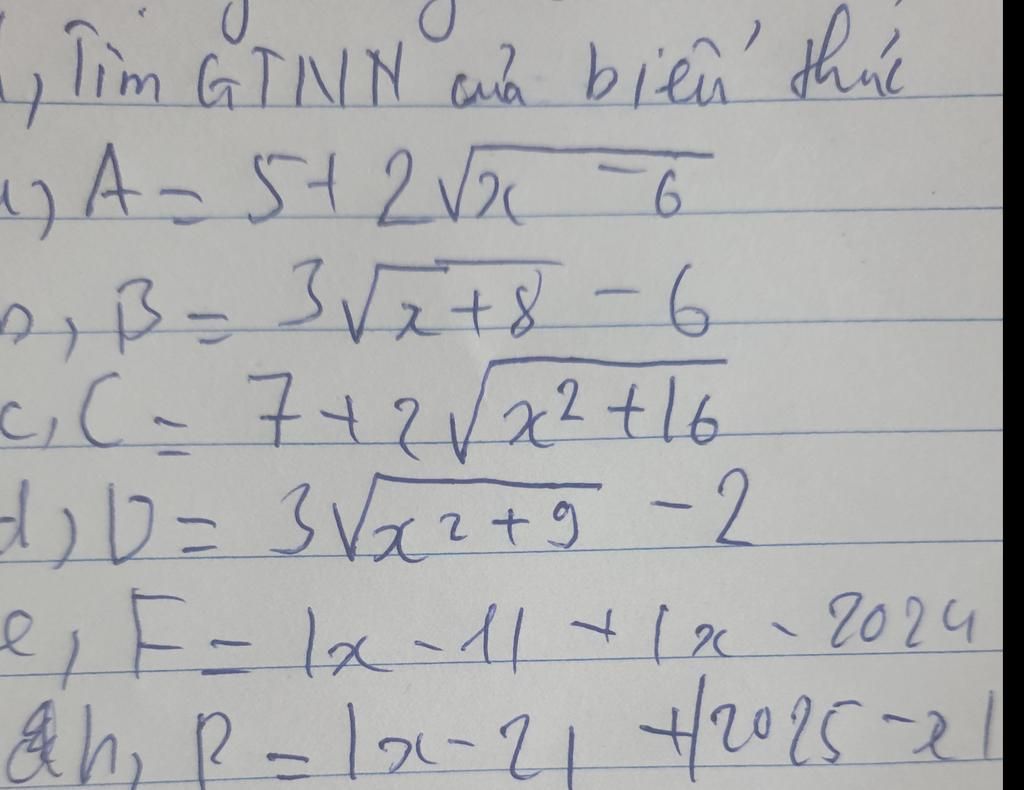 , Tìm GTNN của biểu thức
a) A = 5 + 2√(x - 6)
b, B = 3√(x + 8) - 6
c, C = 7 + 2√(x² + 16)
d) D = 3√(x² + 9) - 2
e, F = |x - 1| + |x - 2024
h, P = |x - 2| + |2025 - x|